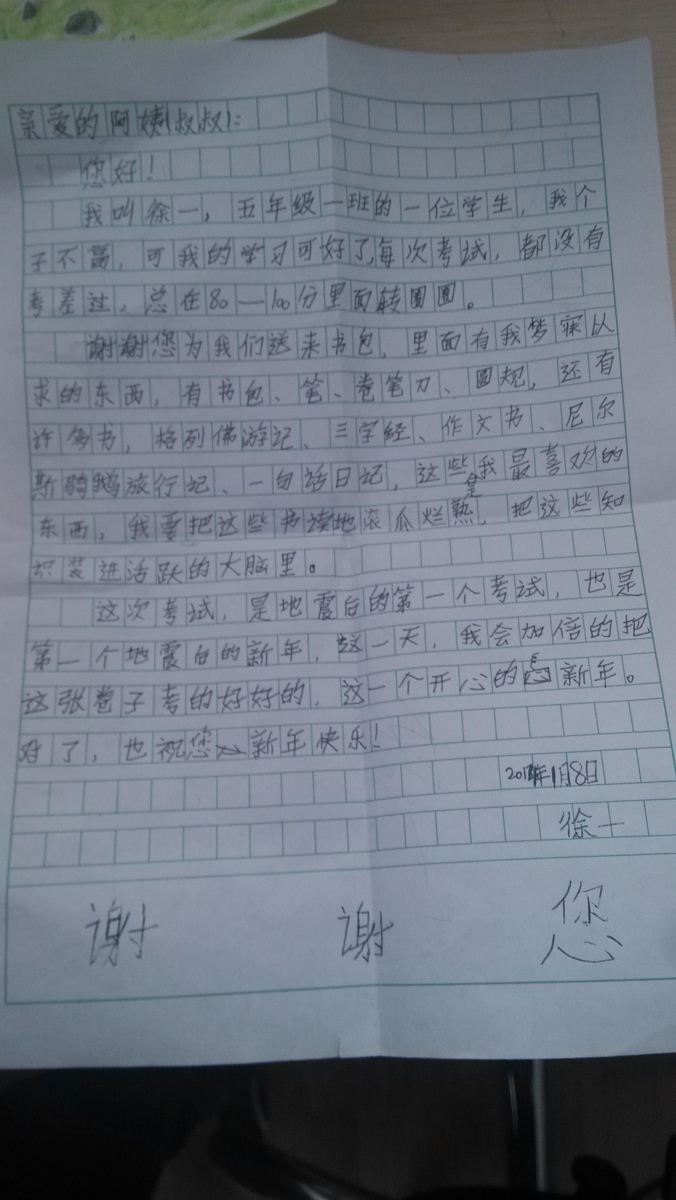 亲爱的阿姨(叔叔):
您好!
我叫徐一，五年级一班的一位学生，我个
子不高，可我的学习可好了,每次考试，都没有
考差过，总在80—100分里面转圈圈。
谢谢您为我们送来书包，里面有我梦寐以
求的东西，有书包、笔、卷笔刀、圆规，还有
许多书，格列佛游记、三字经、作文书、尼尔
斯骑鹅旅行记、一句话日记，这些是我最喜欢的
东西，我要把这些书读地滚瓜烂熟，把这些知
识装进活跃的大脑里。
这次考试，是地震后的第一个考试，也是
第一个地震后的新年，这一天，我会加倍的把
这张卷子考的好好的，这一个开心的新年。
对了，也祝您新年快乐!
年1月8日
徐一
谢 谢 您